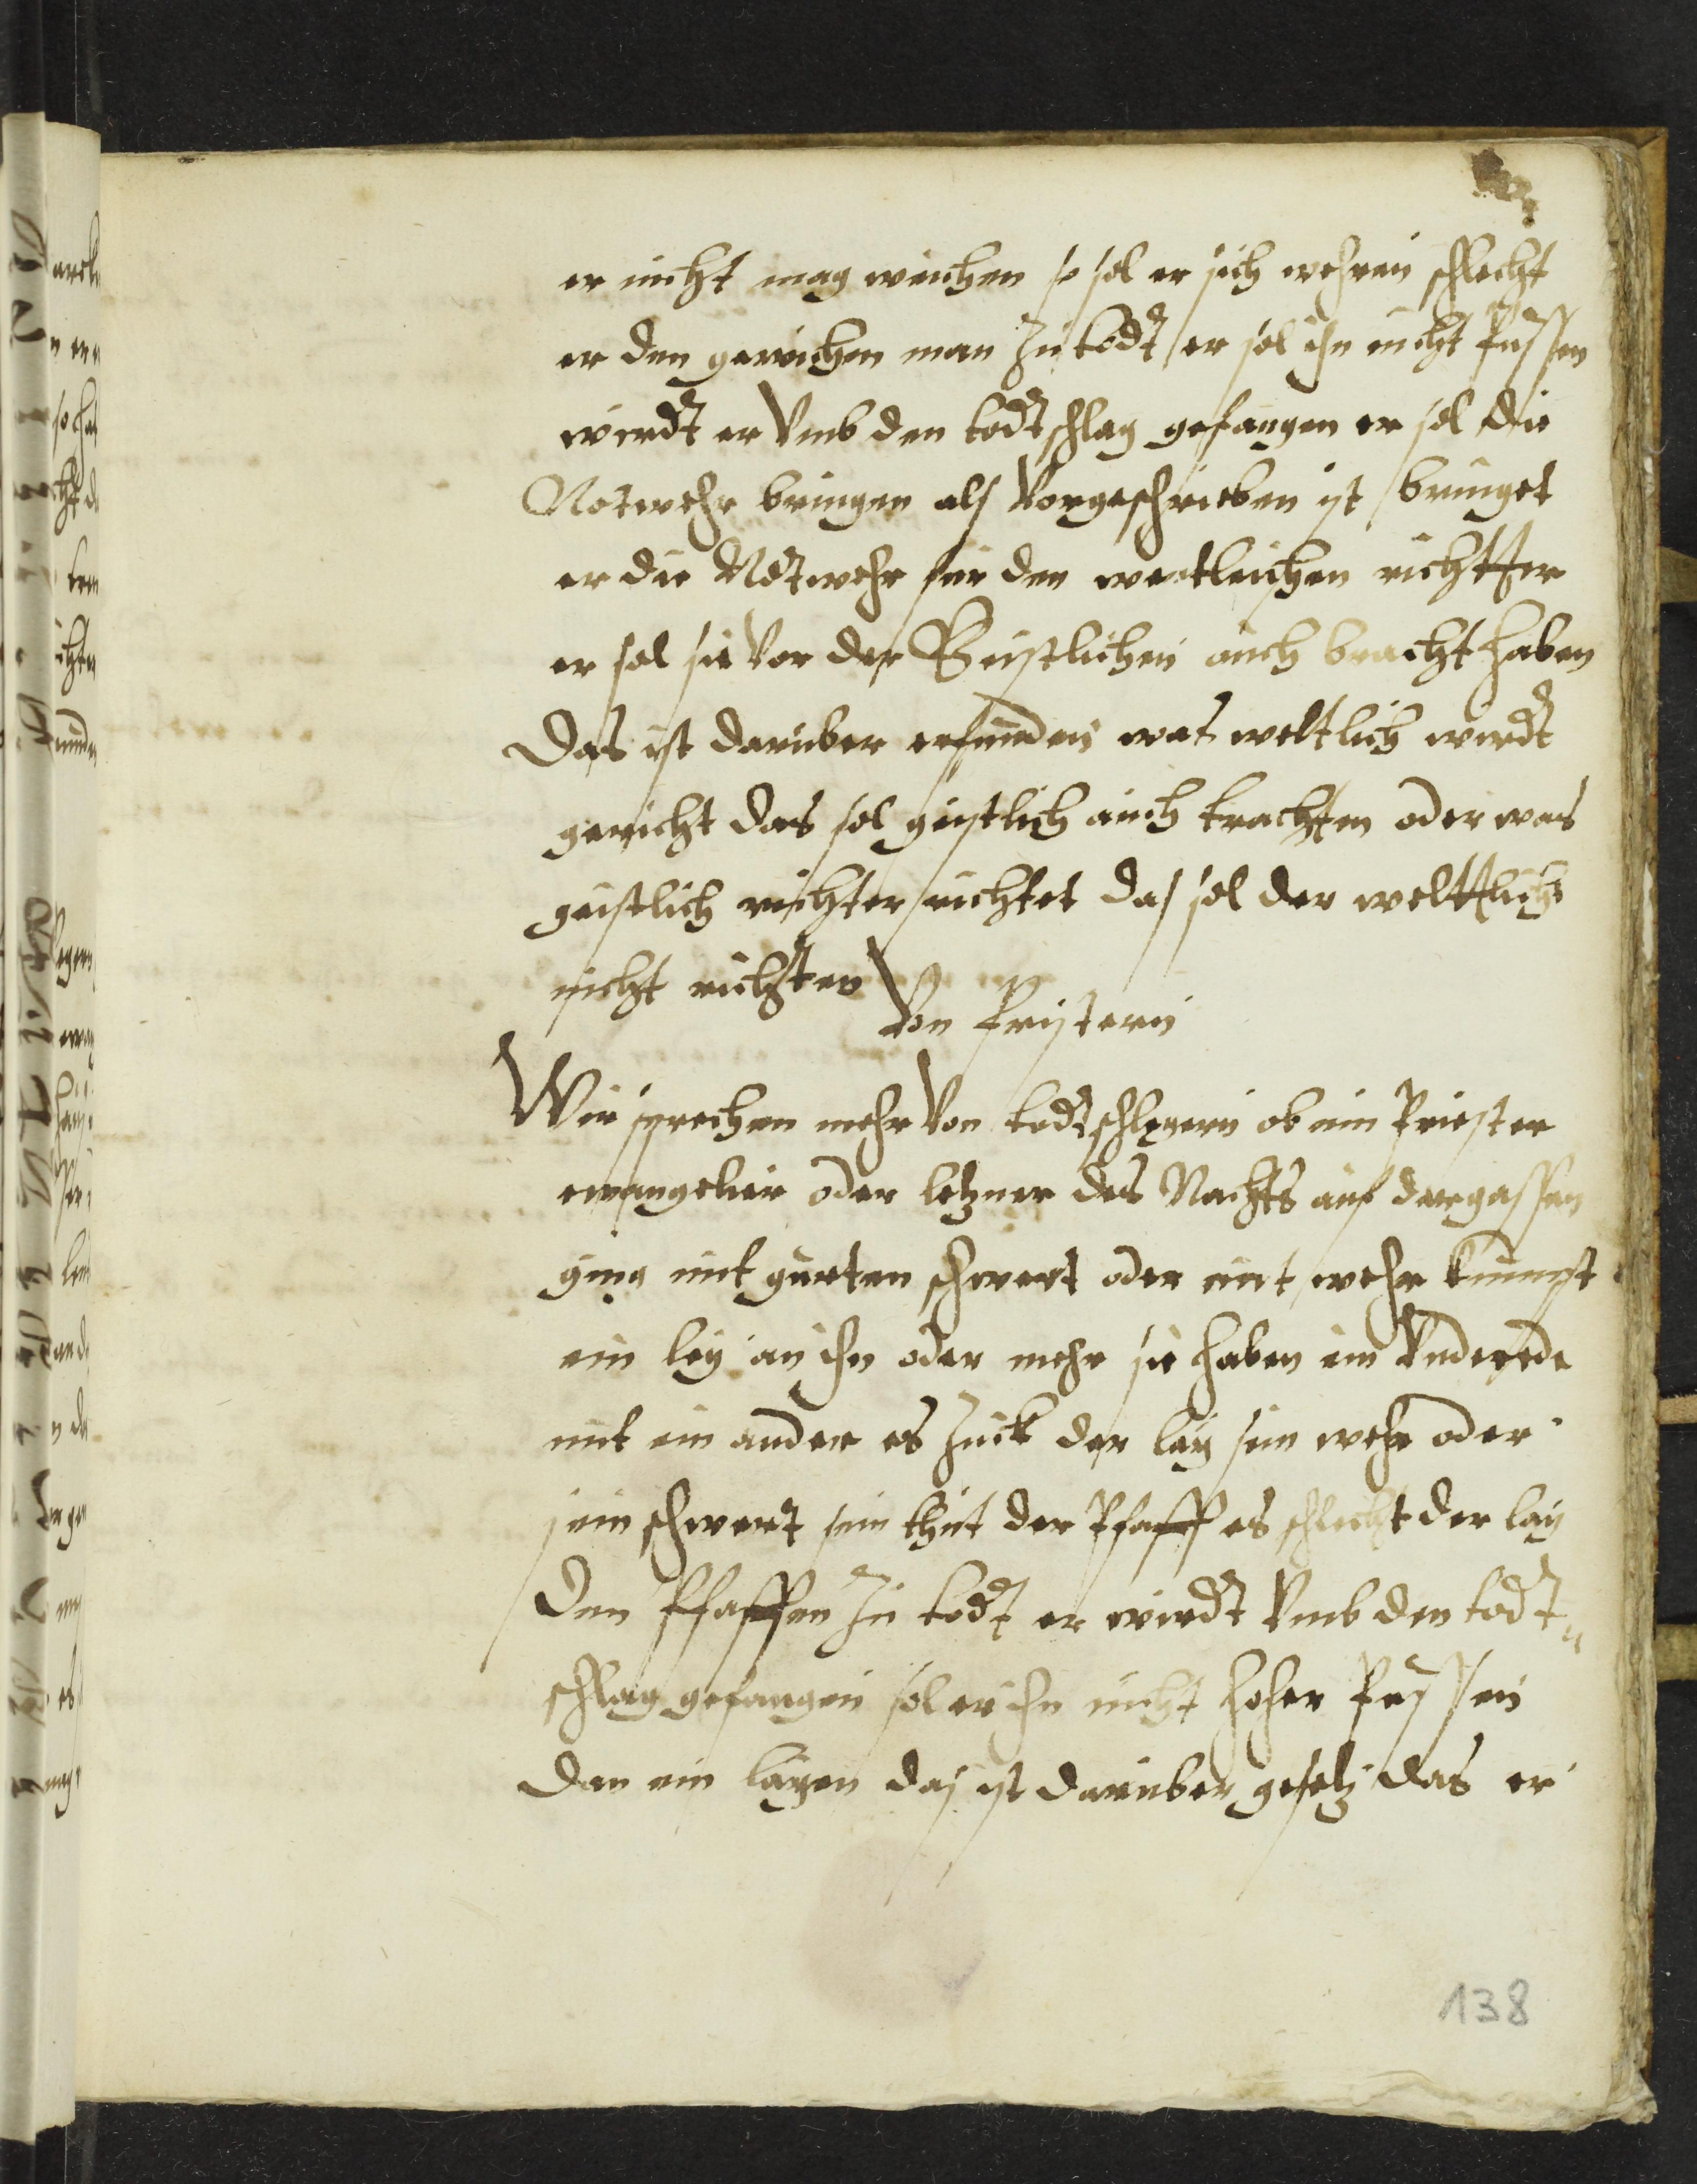 er nicht mag weichen so sol er sich wehren schlecht
er den gewichen man zu todt er sol ihn nicht pussen
wirdt er vmb den todtschlag gefangen er sol die
Notwehr bringen als vorgeschrieben ist bringet
er die Notwehr fur den weltleichen richtter
er sol sie vor der Geistlichen auch bracht haben
Das ist daruber erfunden was weltlich wirdt
gericht das sol geistlich auch trachten oder was
geistlich richter richtet das sol der welttlich
nicht richten
Von Pristern
Wir sprechen mehr von todtschlegern ob ein Priester
ewangelier oder letzner des Nachts auf der gassen
ging mit gurten schwert oder mit wehr kumpt
ein ley an ihn oder mehr sie haben ein vnderede
mit ein ander es zuck der lay sein wehr oder
sein schwert sein thut der Pfaff es schlecht der lay
Den Pfaffen zu todt er wirdt vmb den todt
schlag gefangen sol er ihn nicht hoher pussen
dan ein layen das ist daruber gesetz das er
138